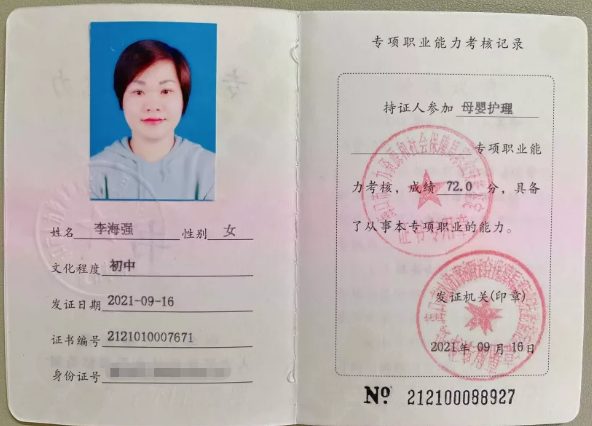 姓名 李海强 性别 女
文化程度 初中
发证日期 2021-09-16
证书编号 2121010007671
身份证号
专项职业能力考核记录
持证人参加 母婴护理
专项职业能
力考核，成绩 72.0 分，具备
了从事本专项职业的能力。
证书专用章
发证机关(印章)
2021年 09月 16日
Nº 212100098927